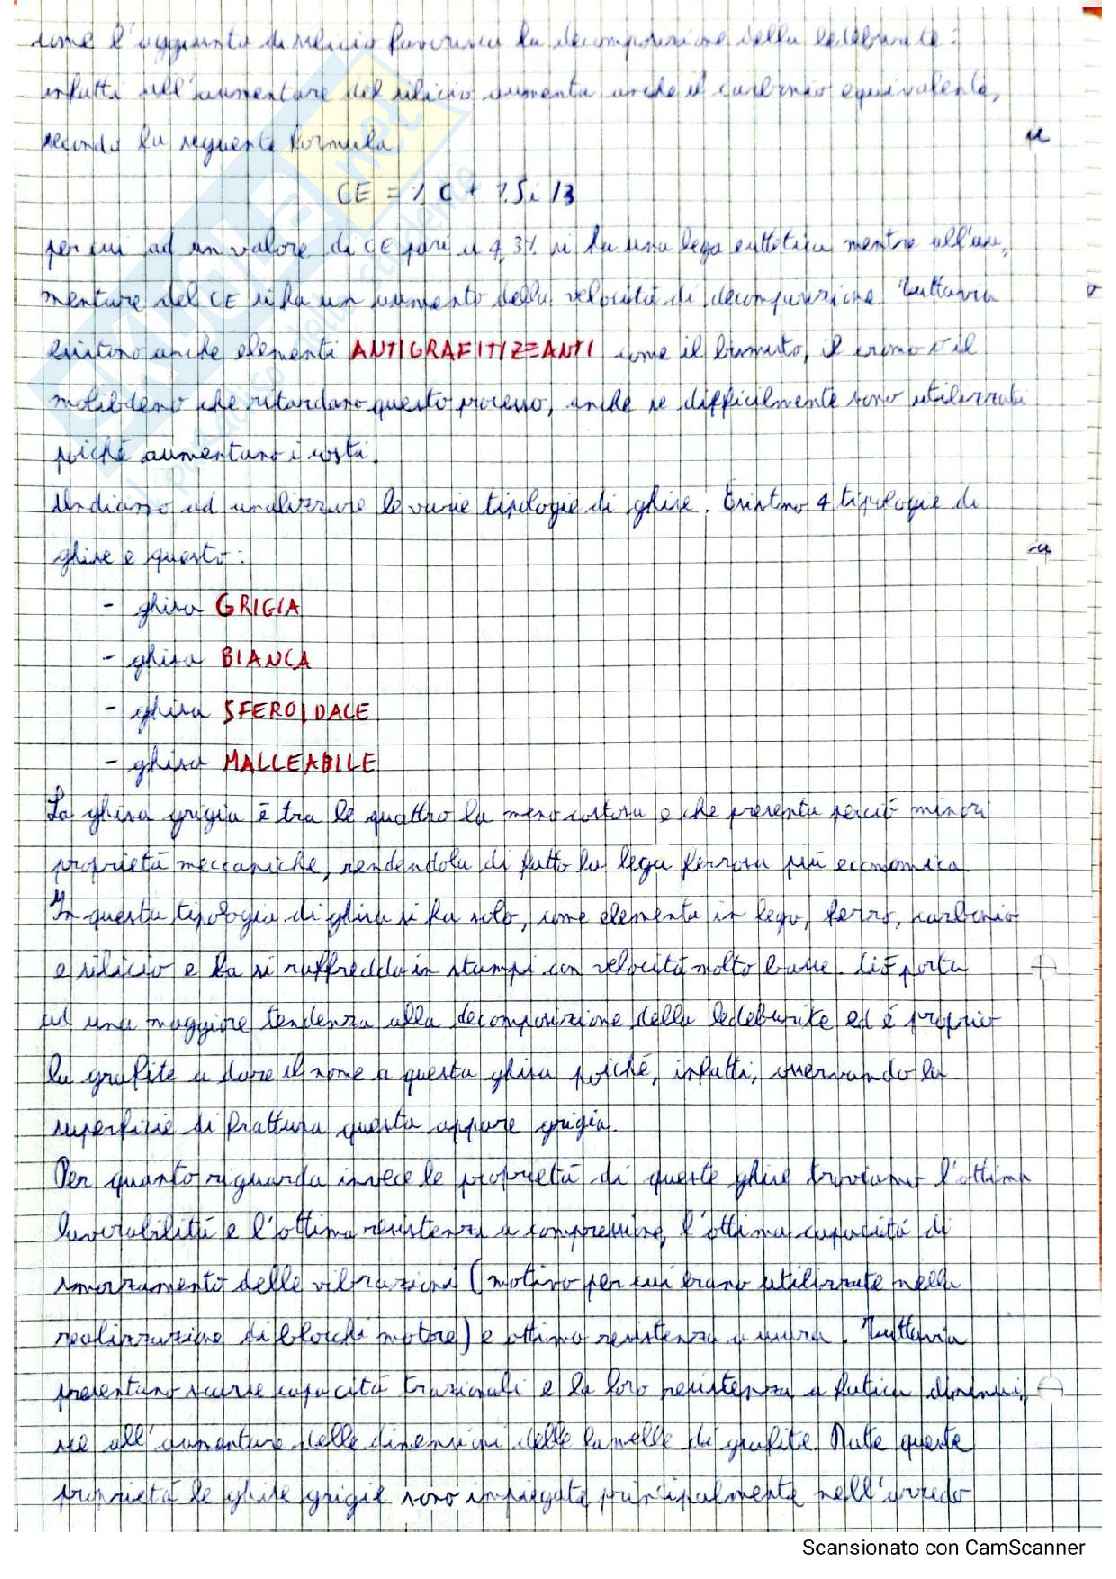 come l'aggiunta di silicio favorisca la decomposizione della ledeburite:
infatti all'aumentare del silicio aumenta anche il carbonio equivalente,
secondo la seguente formula
CE = % C + % Si /3
per cui ad un valore di CE pari a 4,3% si ha una lega eutettica mentre all'au-
mentare del CE si ha un aumento della velocità di decomposizione. Tuttavia
esistono anche elementi ANTIGRAFITIZZANTI come il bismuto, il cromo e il
molibdeno che ritardano questo processo, anche se difficilmente sono utilizzati
poiché aumentano i costi.
Andiamo ad analizzare le varie tipologie di ghise. Esistono 4 tipologie di
ghise e questo:
- ghisa GRIGIA
- ghisa BIANCA
- ghisa SFEROIDALE
- ghisa MALLEABILE
La ghisa grigia è tra le quattro la meno costosa e che presenta perciò minori
proprietà meccaniche, rendendola di fatto la lega ferrosa più economica.
In questa tipologia di ghisa si ha solo, come elementi in lega, ferro, carbonio
e silicio e la si raffredda in stampi con velocità molto basse. Ciò porta
ad una maggiore tendenza alla decomposizione della ledeburite ed è proprio
la grafite a dare il nome a questa ghisa poiché, infatti, osservando la
superficie di frattura questa appare grigia.
Per quanto riguarda invece le proprietà di queste ghise troviamo l'ottima
lavorabilità e l'ottima resistenza a compressione, l'ottima capacità di
smorzamento delle vibrazioni (motivo per cui erano utilizzate nella
realizzazione di blocchi motore) e ottima resistenza a usura. Tuttavia
presentano scarse capacità trazionali e la loro resistenza a fatica diminui-
sce all'aumentare delle dimensioni delle lamelle di grafite. Date queste
proprietà le ghise grigie sono impiegate principalmente nell'arredo
Scansionato con CamScanner